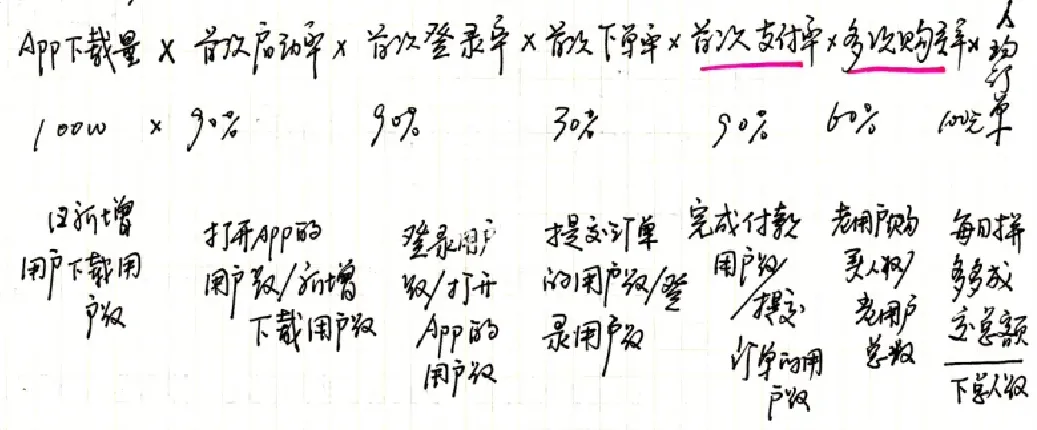 App下载量 × 首次启动率 × 首次登录率 × 首次下单率 × 首次支付率 × 多次购买率 × 人均订单
100w × 90% 90% 30% 90% 60% 100元
日新增
用户下载用
户数
打开APP的
用户数/新增
下载用户数
登录用户
数/打开
App的
用户数
提交订单
的用户数/登
录用户数
完成付款
用户数
/提交
订单的用
户数
老用户购
买人数/
老用户
总数
每日拼
多多成
交总额
下单人数